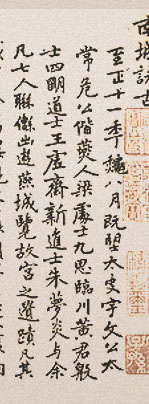 南城詠古
至正十一年龝八月既望太史宇文公太
常危公偕燕人梁處士九思臨川黃君殷
士四明道士王虛齋新進士朱夢炎与余
凡七人聯轡出游燕城覽故宮之遺蹟凡其